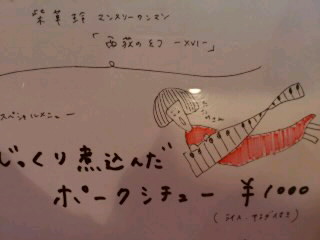 紫草玲 マンスリーワンマン
「西荻の幻 ーXVIー」
スペシャルメニュー
じっくり煮込んだ
ポークシチュー ¥1000
(ライス・サラダ付き)